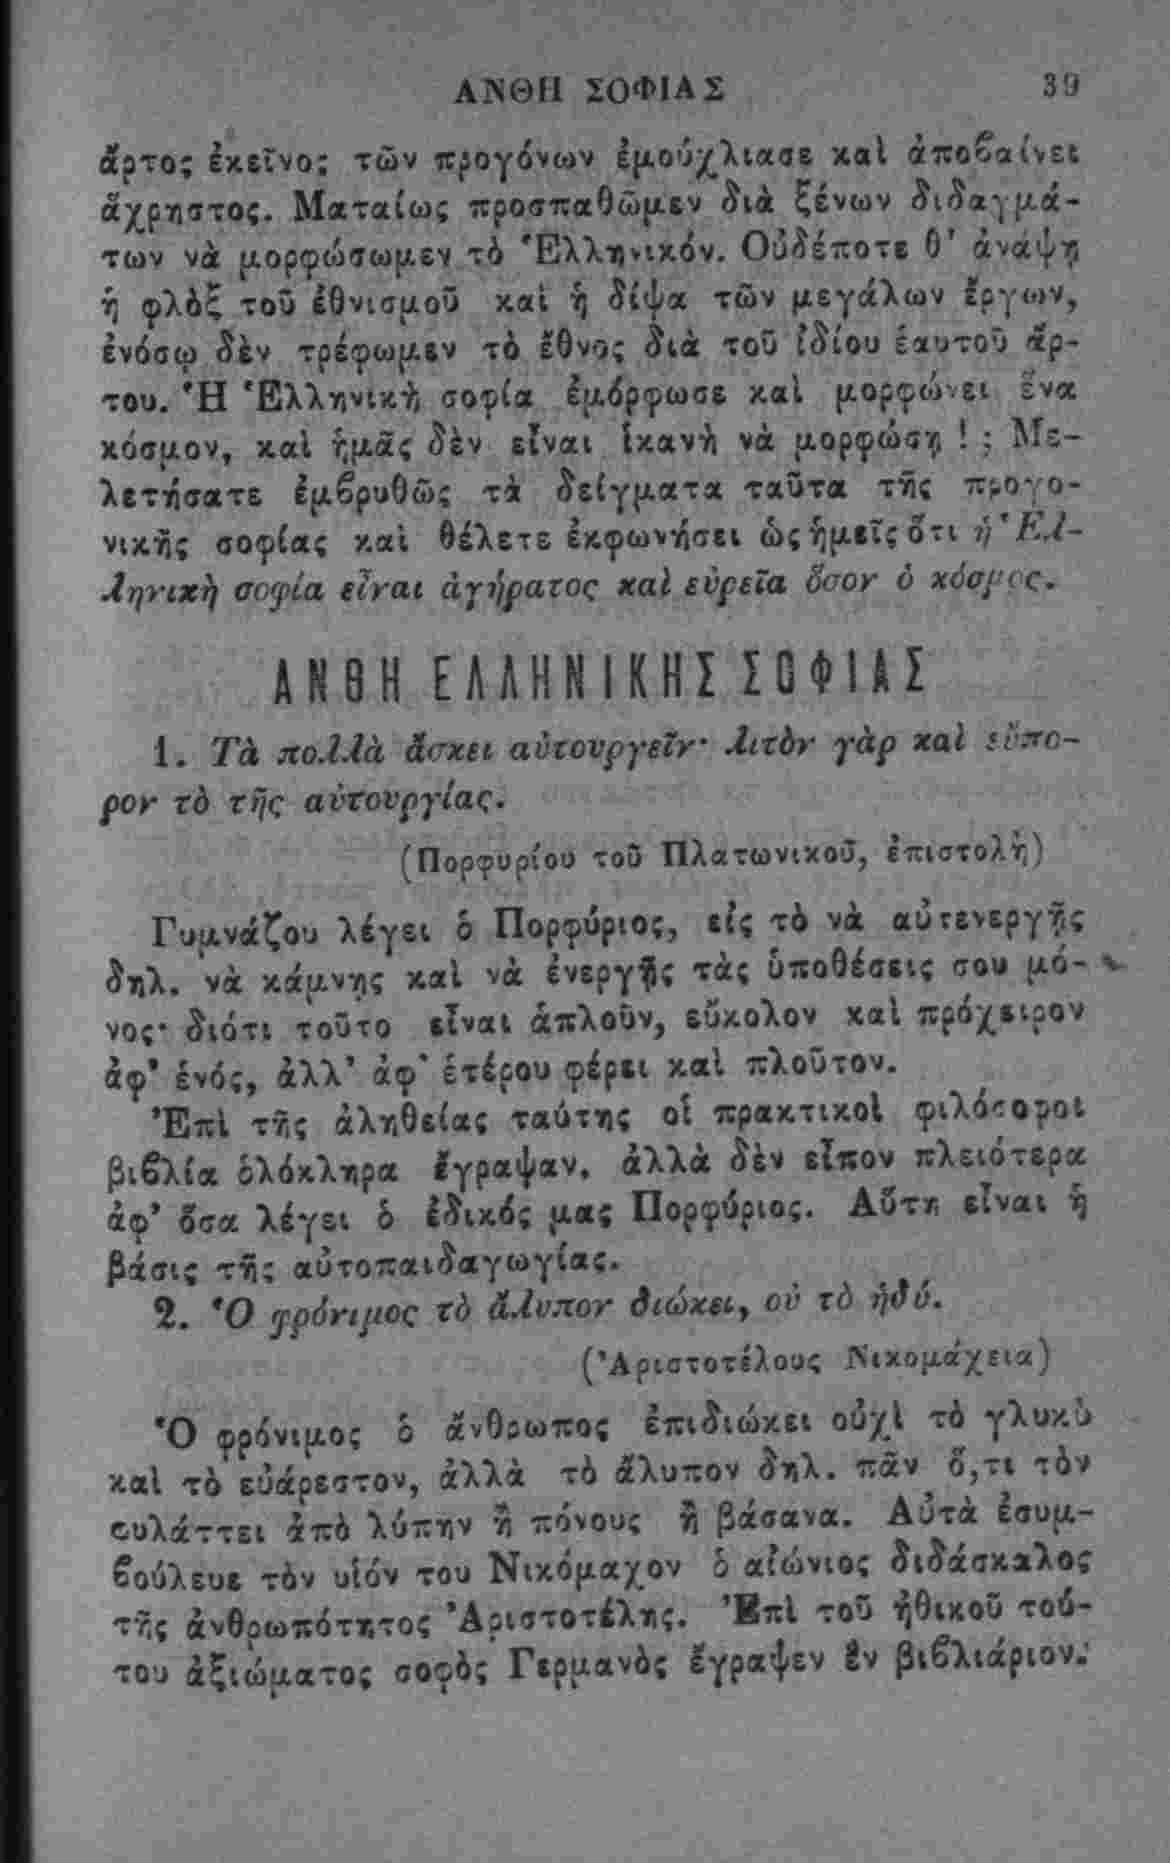 ΑΝΘΗ ΣΟΦΙΑΣ 39
ἄρτος ἐκεῖνος τῶν προγόνων ἐμούχλιασε καὶ ἀποβαίνει
ἄχρηστος. Ματαίως προσπαθῶμεν διὰ ξένων διδαγμά-
των νὰ μορφώσωμεν τὸ Ἑλληνικόν. Οὐδέποτε θ' ἀνάψῃ
ἡ φλὸξ τοῦ ἐθνισμοῦ καὶ ἡ δίψα τῶν μεγάλων ἔργων,
ἐνόσῳ δὲν τρέφωμεν τὸ ἔθνος διὰ τοῦ ἰδίου ἑαυτοῦ ἄρ-
του. Ἡ Ἑλληνικὴ σοφία ἐμόρφωσε καὶ μορφώνει ἕνα
κόσμον, καὶ ἡμᾶς δὲν εἶναι ἱκανὴ νὰ μορφώσῃ ! ; Με-
λετήσατε ἐμβρυθῶς τὰ δείγματα ταῦτα τῆς προγο-
νικῆς σοφίας καὶ θέλετε ἐκφωνήσει ὡς ἡμεῖς ὅτι ἡ Ἑλ-
ληνικὴ σοφία εἶναι ἀγήρατος καὶ εὐρεῖα ὅσον ὁ κόσμος.
ΑΝΘΗ ΕΛΛΗΝΙΚΗΣ ΣΟΦΙΑΣ
1. Τὰ πολλὰ ἄσκει αὐτουργεῖν· λιτὸν γὰρ καὶ εὔπο-
ρον τὸ τῆς αὐτουργίας.
(Πορφυρίου τοῦ Πλατωνικοῦ, ἐπιστολὴ)
Γυμνάζου λέγει ὁ Πορφύριος, εἰς τὸ νὰ αὐτενεργῇς
δηλ. νὰ κάμνῃς καὶ νὰ ἐνεργῇς τὰς ὑποθέσεις σου μό-
νος· διότι τοῦτο εἶναι ἁπλοῦν, εὔκολον καὶ πρόχειρον
ἀφ' ἑνός, ἀλλ' ἀφ' ἑτέρου φέρει καὶ πλοῦτον.
Ἐπὶ τῆς ἀληθείας ταύτης οἱ πρακτικοὶ φιλόσοφοι
βιβλία ὁλόκληρα ἔγραψαν, ἀλλὰ δὲν εἶπον πλειότερα
ἀφ' ὅσα λέγει ὁ ἐδικός μας Πορφύριος. Αὕτη εἶναι ἡ
βάσις τῆς αὐτοπαιδαγωγίας.
2. Ὁ φρόνιμος τὸ ἄλυπον διώκει, οὐ τὸ ἡδύ.
(Ἀριστοτέλους Νικομάχεια)
Ὁ φρόνιμος ὁ ἄνθρωπος ἐπιδιώκει οὐχὶ τὸ γλυκὺ
καὶ τὸ εὐάρεστον, ἀλλὰ τὸ ἄλυπον δηλ. πᾶν ὅ,τι τὸν
φυλάττει ἀπὸ λύπην ἢ πόνους ἢ βάσανα. Αὐτὰ ἐσυμ-
βούλευε τὸν υἱόν του Νικόμαχον ὁ αἰώνιος διδάσκαλος
τῆς ἀνθρωπότητος Ἀριστοτέλης. Ἐπὶ τοῦ ἠθικοῦ τού-
του ἀξιώματος σοφὸς Γερμανὸς ἔγραψεν ἓν βιβλιάριον.